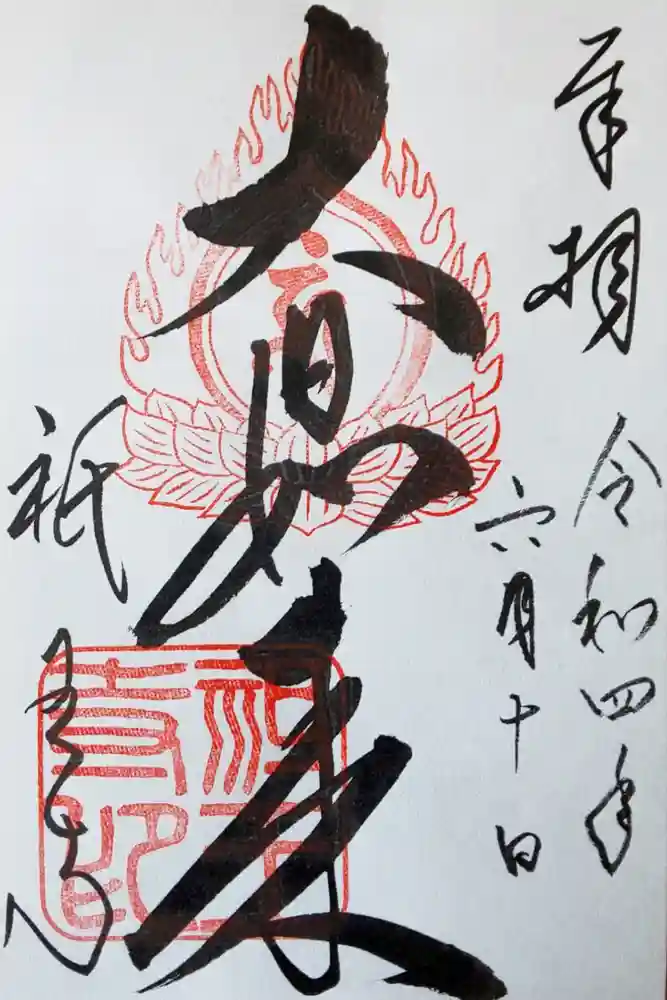 奉拝 令和四年
六月十日
大日如来
祇王寺
祇王
寺印